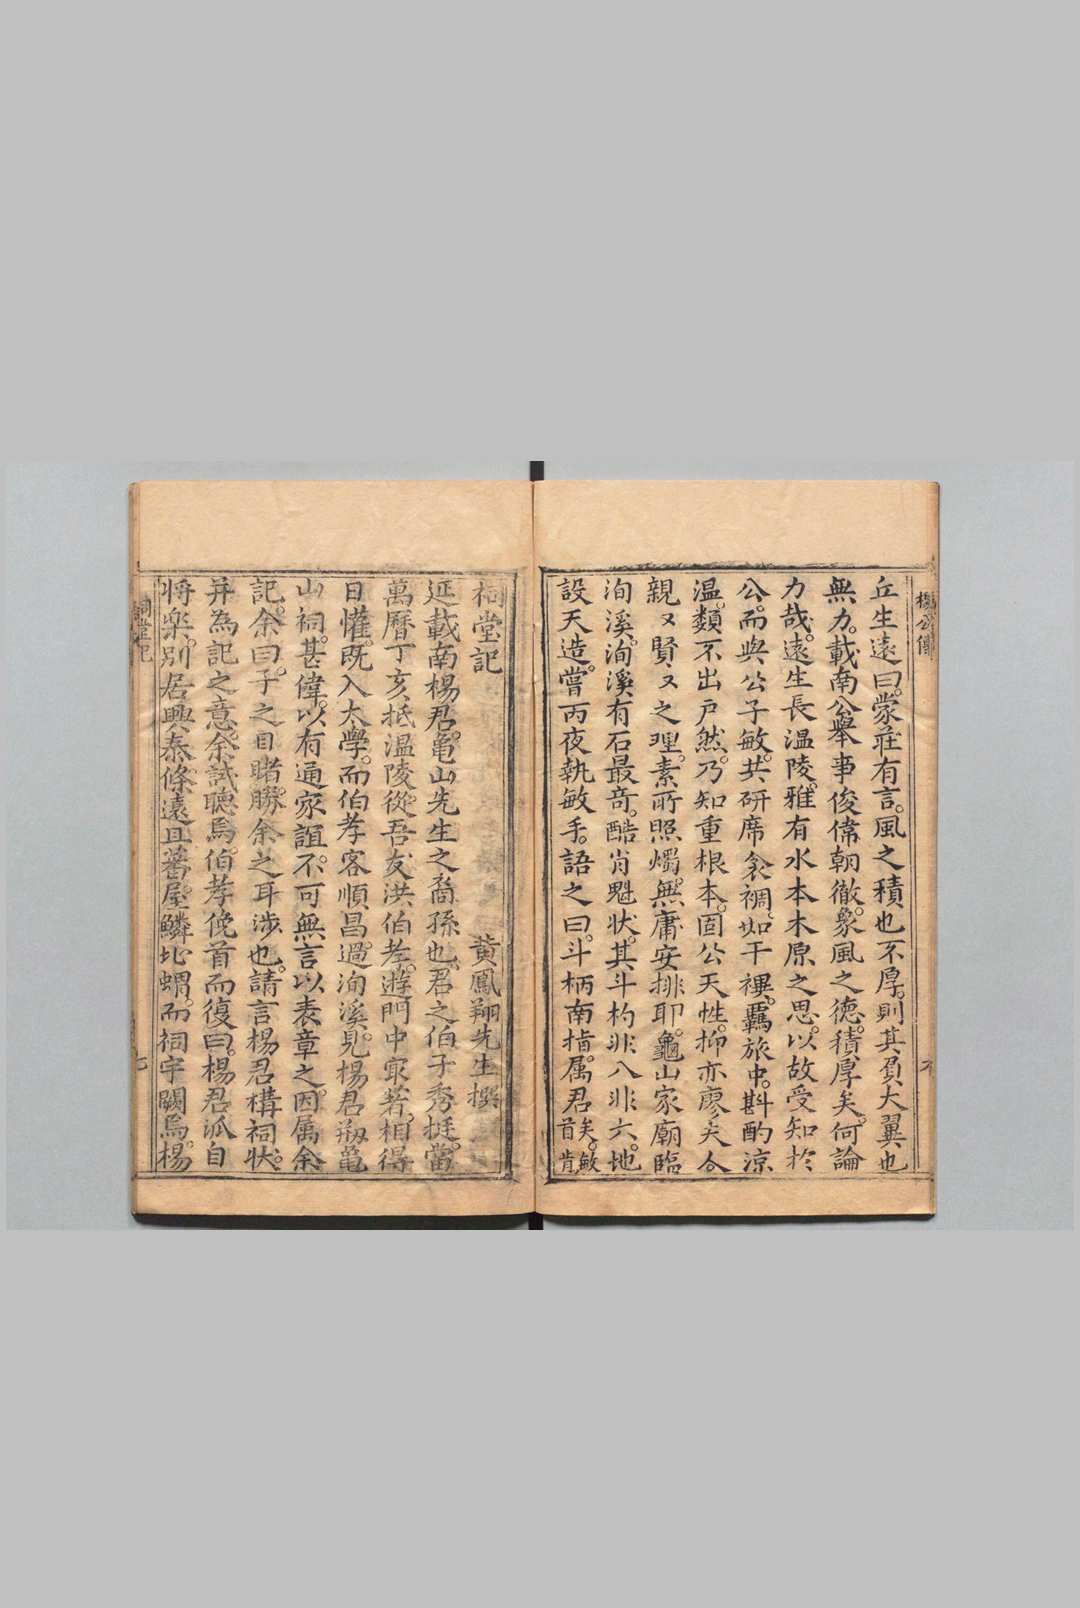 丘生遠曰。蒙莊有言。風之積也不厚。則其負大翼也
無力。載南公舉事俊偉朗徹。象風之德。積厚矣。何論
力哉。遠生長溫陵。雅有水本木原之思。以故受知於
公。而與公子敏。共研席衾裯。如干禩。羈旅中。斟酌涼
溫。類不出戶然。乃知重根本。固公天性。抑亦廖矣公
親ヌ賢ヌ之理。素所照燭。無庸安排耶。龜山家廟臨
洵溪。洵溪有石最奇。酷肖魁状。其斗杓非八非六。地
設天造。嘗丙夜執敏手。語之曰。斗柄南指。属君矣。敏首肯
祠堂記
黃鳳翔先生撰
延載南楊君。龜山先生之裔孫也。君之伯子秀挺。當
萬曆丁亥。抵溫陵。從吾友洪伯孝。遊門中㝡著。相得
日懽。既入太學。而伯孝客順昌。過洵溪。見楊君剏龜
山祠。甚偉。以有通家誼。不可無言以表章之。因属余
記。余曰。子之目睹。勝余之耳涉也。請言楊君構祠状。
并為記之意。余試聽焉。伯孝俛首而復曰。楊君派自
将楽。別居興泰。條遠且蕃。屋鱗比蝟。而祠宇闕焉。楊
楊公傳
祠堂記
七